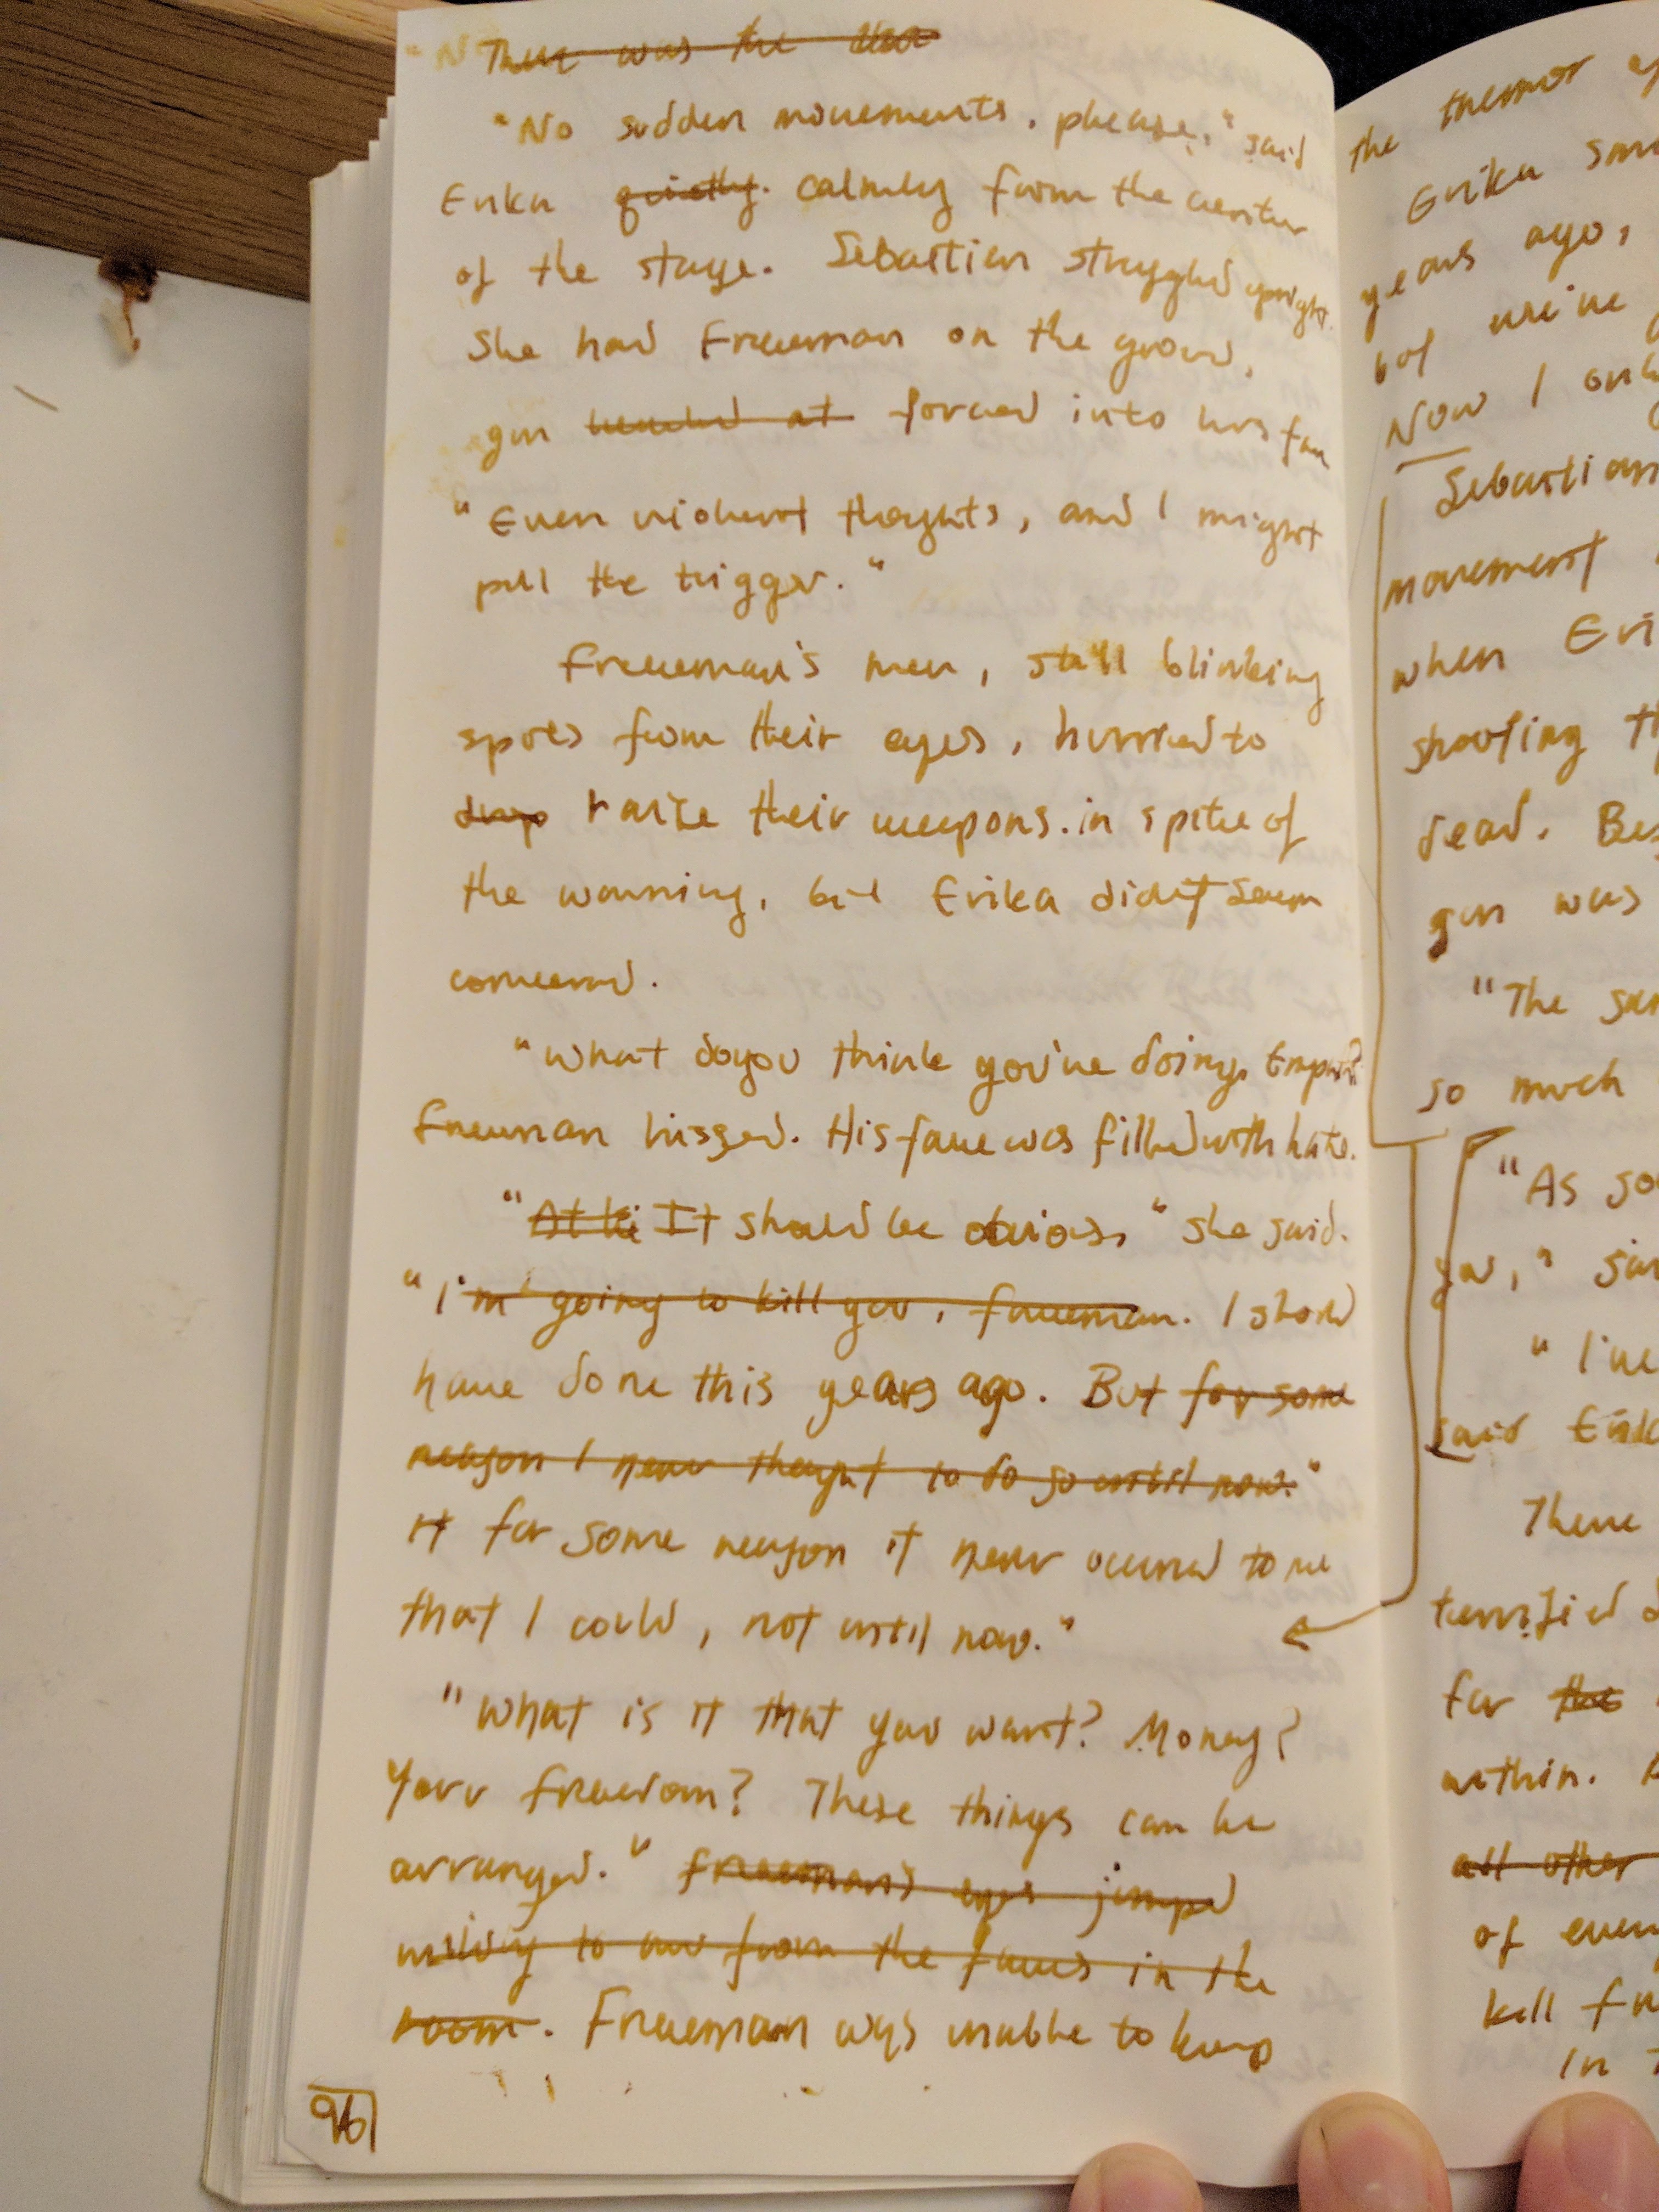 There was the
"No sudden movements, please," said
Erika quietly. calmly from the center
of the stage. Sebastian struggled upright.
She had Freeman on the ground,
gun leveled at forced into his face
"Even violent thoughts, and I might
pull the trigger."
Freeman's men, still blinking
spots from their eyes, hurried to
drop raise their weapons. in spite of
the warning, but Erika didn't seem
concerned.
"What do you think you're doing,
Freeman hissed. His face was filled with hate.
"It should be obvious," she said.
"I'm going to kill you, Freeman. I should
have done this years ago. But for some
reason I never thought to do so until now."
it for some reason it never occurred to me
that I could, not until now."
"What is it that you want? Money?
Your freedom? These things can be
arranged." Freeman's eyes jumped
from the faces in the
room. Freeman was unable to keep
96
the
Erika
years ago,
Now I
Sebastian
movement
when Eri
shooting
dead.
gun was
"The
so much
"As
you,"
"I've
said Erika
There
terrified
for the
within.
all other
of
kill
In